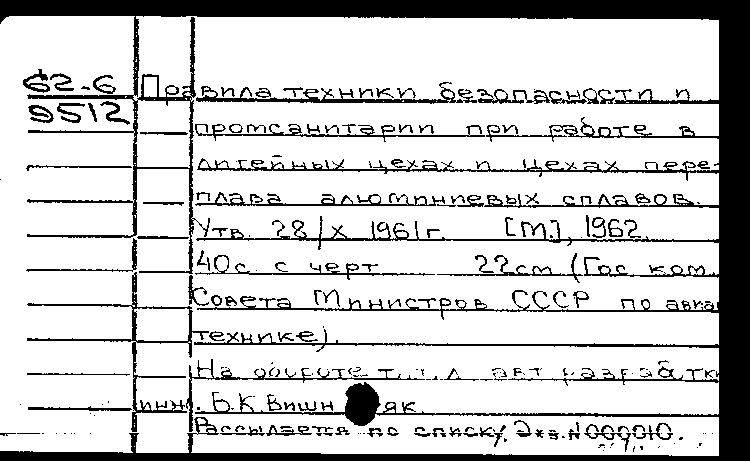 62-6 Правила техники безопасности и
9512 промсанитарии при работе в
литейных цехах и цехах пере-
плава алюминиевых сплавов.
Утв. 28/X 1961г. [М], 1962.
40с. с черт 22см (Гос. ком.
Совета Министров СССР по авиа
технике).
На обороте т.. л авт разработки
инж. Б.К. Вишн як.
Рассылается по списку. Экз.N000010.